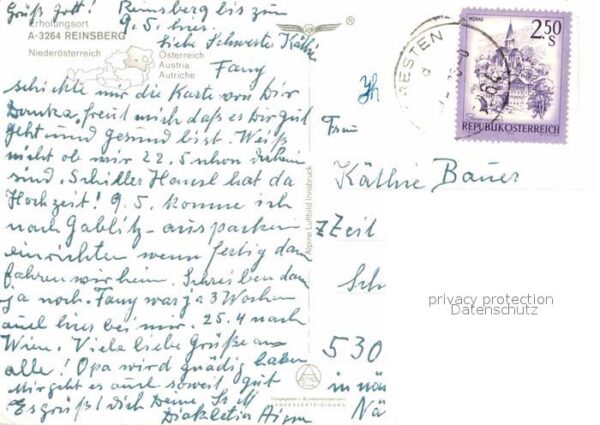 Grüß Gott! Reinsberg bis zum
9.5. hier.
Erholungsort
A-3264 REINSBERG
Niederösterreich
Österreich
Austria
Autriche
Liebe Schwester Käthi
Fany
schickte mir die Karte von Dir
Danke, freut mich daß es Dir gut
geht und gesund bist. Weiß
nicht ob wir 22.5 schon daheim
sind. Schiller Hansl hat da
Hochzeit! 9.5. komme ich
nach Gablitz - auspacken
einrichten wenn fertig dan
fahren wir heim. Schreiben dan
ja noch. Fany war ja 3 Wochen
auch hier bei mir. 25.4 nach
Wien. Viele liebe Grüße an
alle! Opa wird gnädig haben
Mir geht es auch soweit gut
Es grüßt Dich Deine
Alpine Luftbild Innsbruck
RESTEN
MURAU
2.50
S
REPUBLIK ÖSTERREICH
Frau
Käthie Bauer
z Zeit
Sch
530
in
privacy protection
Datenschutz